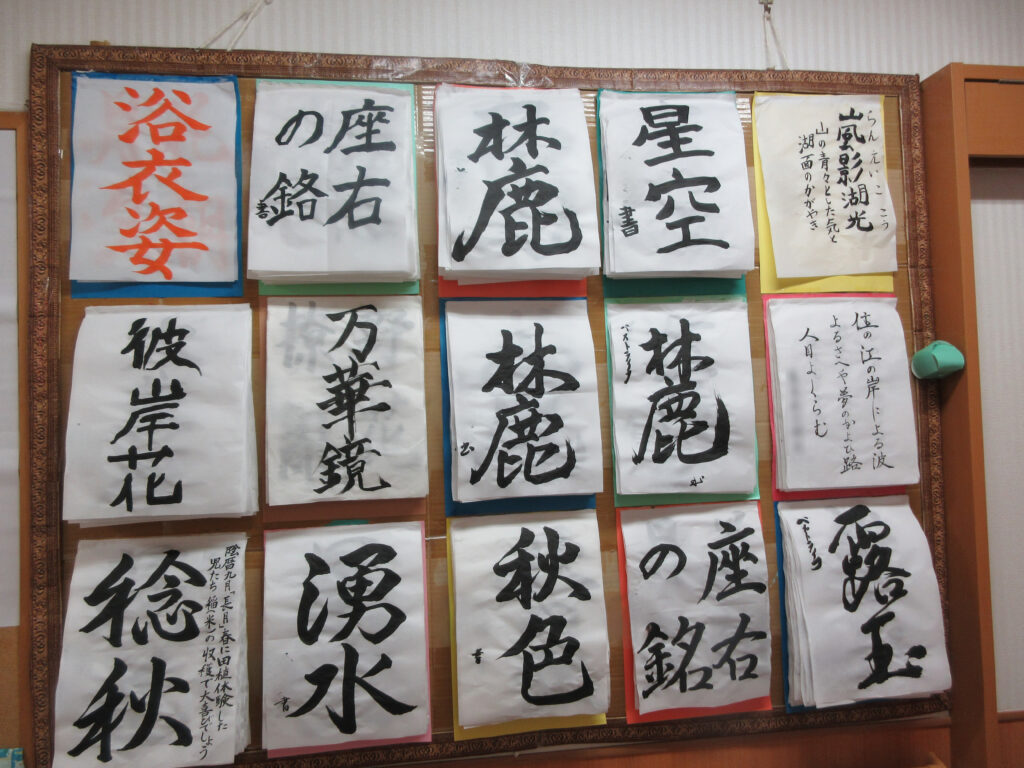 浴衣姿
座右
の鉻
書
麓
星空
書
らんえいここう
嵐影湖光
山の青々とした気と
湖面のかがやき
彼岸花
万華鏡
麓
麓
ベストライフ
住の江の岸による波
よるさへや夢のかよひ路
人目よくらむ
陰暦九月「長月」春に田植体験した
児たち稲(米)の収穫で大喜びでしょう
稔秋
湧水
書
秋色
書
座右
の銘
露玉
ベストライフ